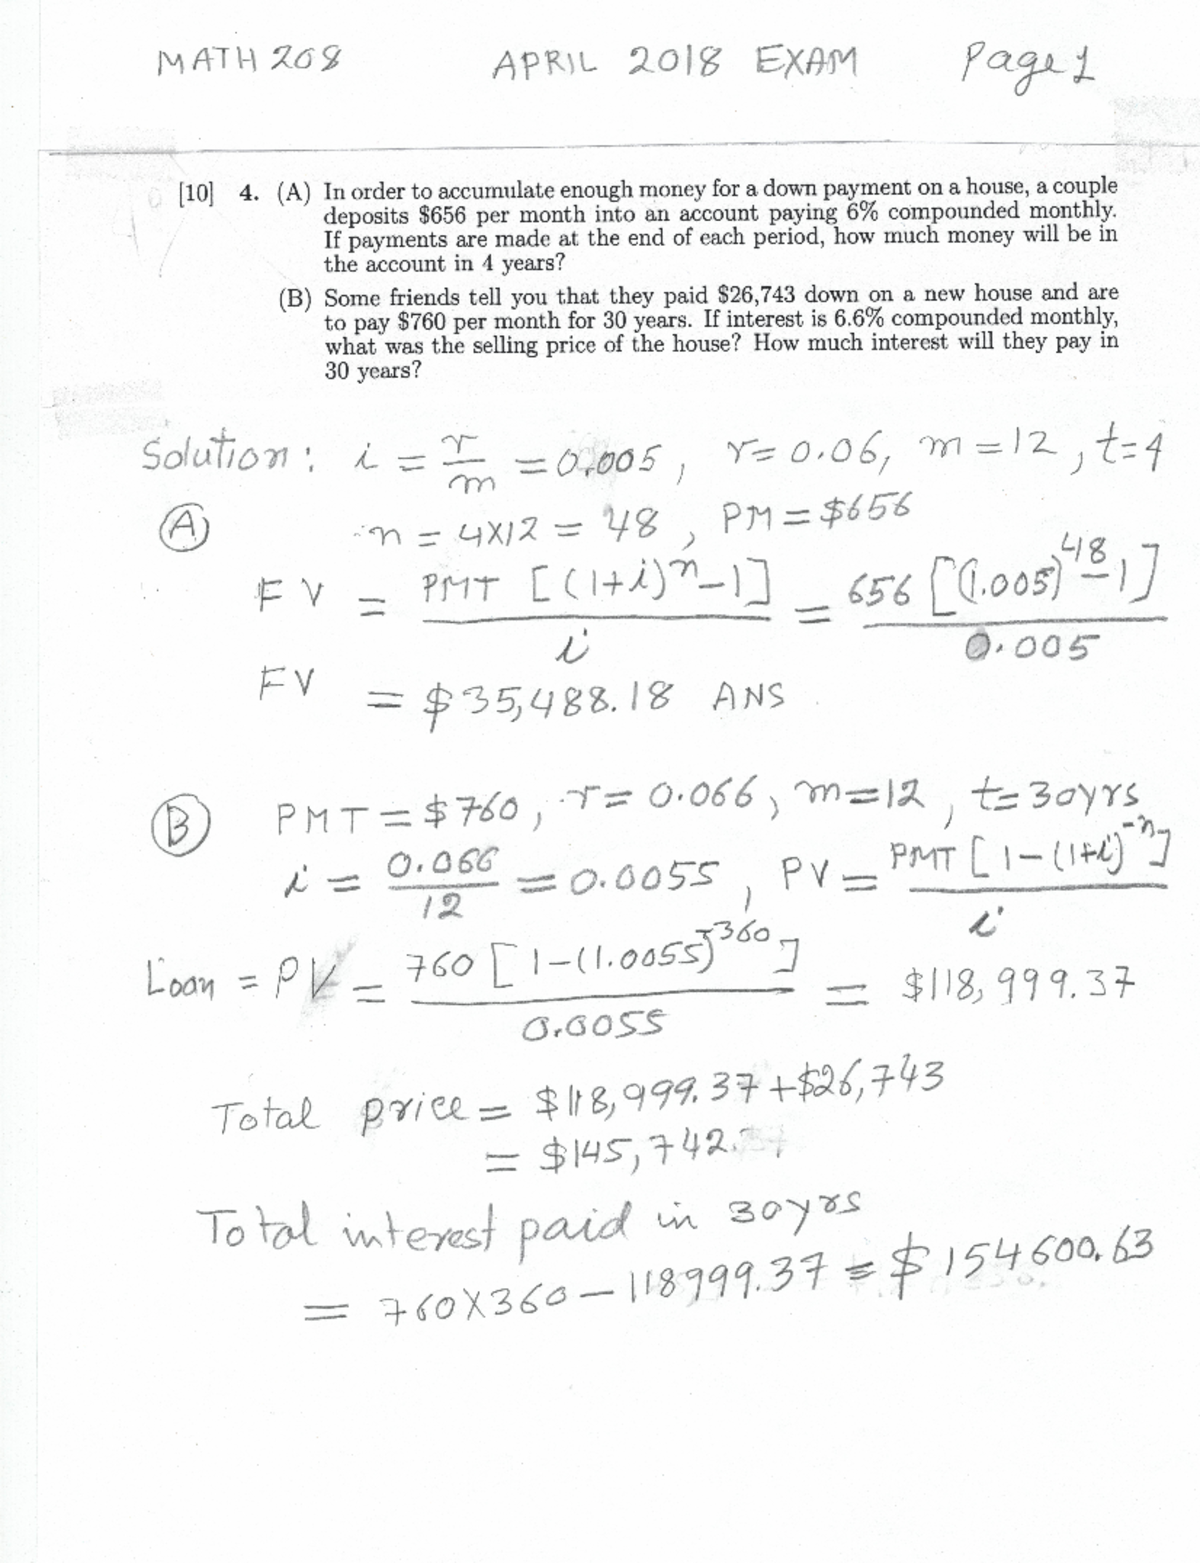 MATH 208 APRIL 2018 EXAM Page 1
[10] 4. (A) In order to accumulate enough money for a down payment on a house, a couple
deposits $656 per month into an account paying 6% compounded monthly.
If payments are made at the end of each period, how much money will be in
the account in 4 years?
(B) Some friends tell you that they paid $26,743 down on a new house and are
to pay $760 per month for 30 years. If interest is 6.6% compounded monthly,
what was the selling price of the house? How much interest will they pay in
30 years?
Solution: i = r/m = 0.005, r = 0.06, m = 12, t = 4
(A) n = 4X12 = 48, PM = $656
FV = PMT [(1+i)^n - 1] / i = 656 [(1.005)^48 - 1] / 0.005
FV = $35,488.18 ANS
(B) PMT = $760, r = 0.066, m = 12, t = 30yrs
i = 0.066 / 12 = 0.0055, PV = PMT [1 - (1+i)^-n] / i
Loan = PV = 760 [1 - (1.0055)^-360] / 0.0055 = $118,999.37
Total price = $118,999.37 + $26,743
= $145,742.
Total interest paid in 30yrs
= 760X360 - 118999.37 = $154600.63